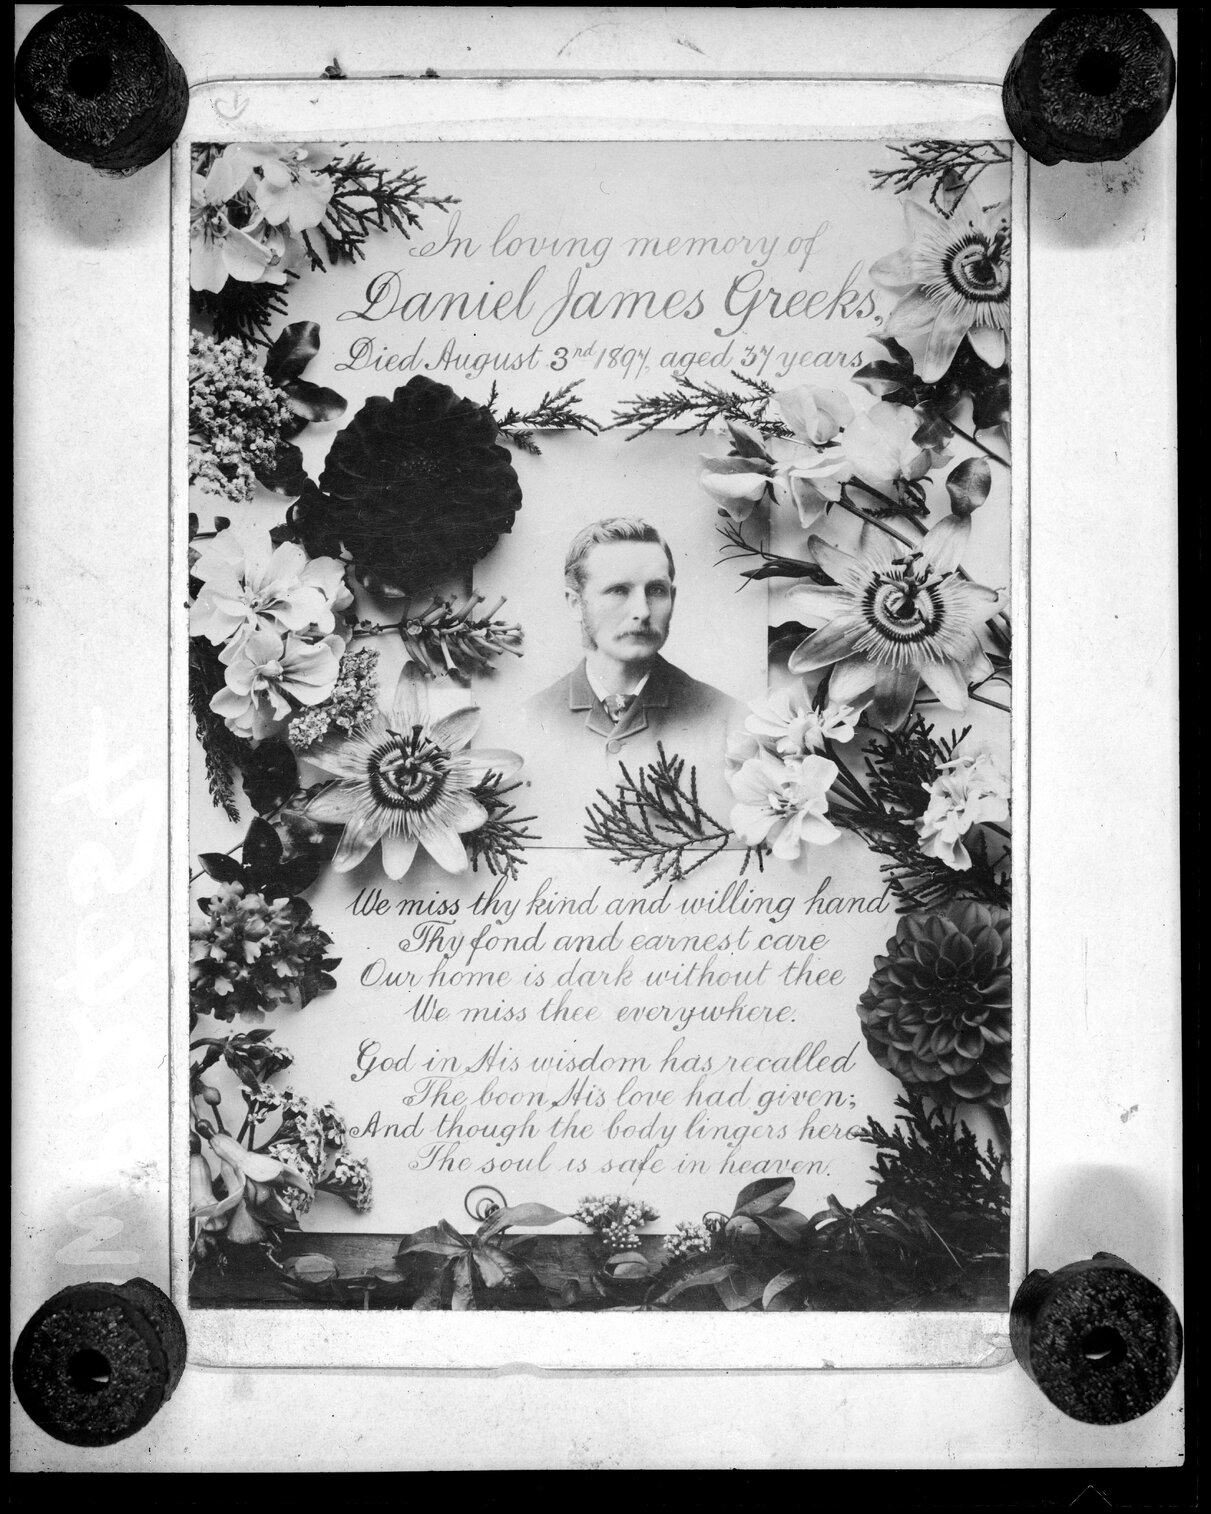 In loving memory of
Daniel James Greeks,
Died August 3rd 1897, aged 37 years.
We miss thy kind and willing hand
Thy fond and earnest care
Our home is dark without thee
We miss thee everywhere.
God in His wisdom has recalled
The boon His love had given;
And though the body lingers here
The soul is safe in heaven.